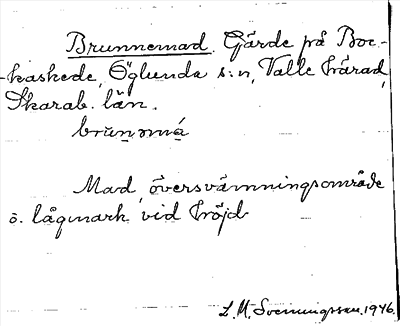 Brunnemad. Gärde på Boc-
-kaskede, Öglunda s:n, Valle härad,
Skarab. län.
brun̥əmá
Mad, översvämningsområde
o. lågmark vid höjd
L. M. Svenungsson. 1946.